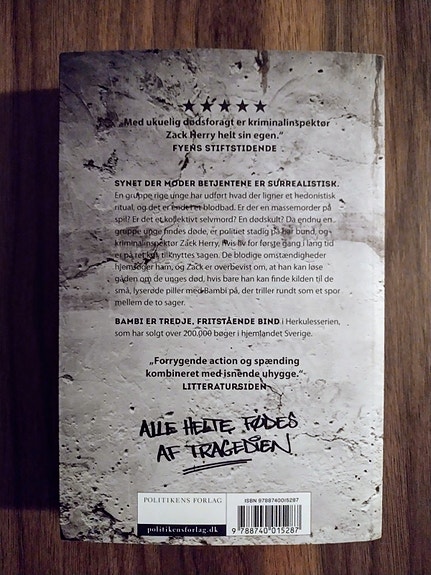 ★★★★★
„Med ukuelig dødsforagt er kriminalinspektør
Zack Herry helt sin egen.“
FYENS STIFTSTIDENDE
SYNET DER MØDER BETJENTENE ER SURREALISTISK.
En gruppe rige unge har udført hvad der ligner et hedonistisk
ritual, og det er endt i et blodbad. Er der en massemorder på
spil? Er det et kollektivt selvmord? En dødskult? Da endnu en
gruppe unge findes døde, er politiet stadig på bar bund, og
kriminalinspektør Zack Herry, hvis liv for første gang i lang tid
er på ret køl, tilknyttes sagen. De blodige omstændigheder
hjemsøger ham, og Zack er overbevist om, at han kan løse
gåden om de unges død, hvis bare han kan finde kilden til de
små, lyserøde piller med Bambi på, der triller rundt som et spor
mellem de to sager.
BAMBI ER TREDJE, FRITSTÅENDE BIND i Herkulesserien,
som har solgt over 200.000 bøger i hjemlandet Sverige.
„Forrygende action og spænding
kombineret med isnende uhygge.“
LITTERATURSIDEN
ALLE HELTE FØDES
AF TRAGEDIEN.
POLITIKENS FORLAG
politikensforlag.dk
ISBN 9788740015287
9 788740 015287